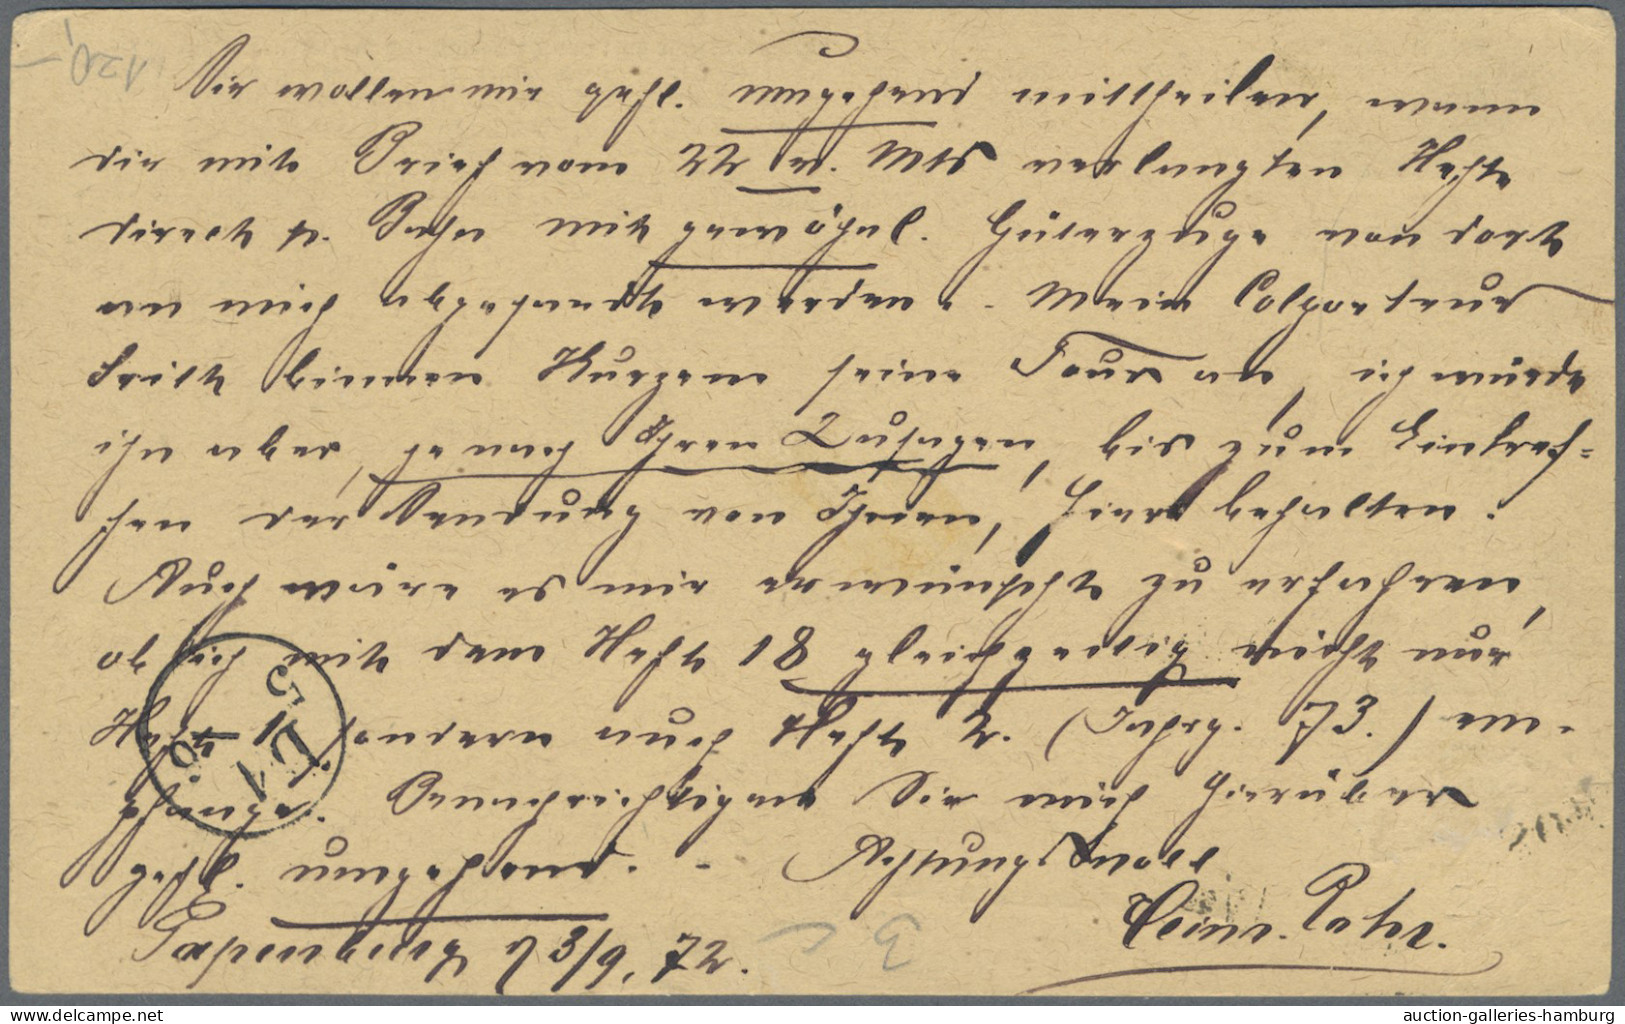 120,-
Sie wollen mir gefl. umgehend mittheilen, wann
die mit Brief vom 22 v. Mts verlangten Hefte
direct p. Bahn mit gewöhnl. Güterzuge von dort
an mich abgesandt werden. - Mein Colporteur
tritt binnen Kurzem seine Tour an, ich würde
ihn aber, je nach Ihren Zusagen, bis zum Eintref-
fen der Sendung von Ihnen, hier behalten.
Auch wäre es mir erwünscht zu erfahren,
ob ich mit dem Heft 18 gleichzeitig nicht nur
Heft 1 sondern auch Heft 2. (Jahrg. 73.) em-
pfange. Benachrichtigen Sie mich hierüber
gefl. umgehend. - Achtungsvoll
Heinr. Rohr.
Papenburg d 3/9. 72.
auction-galleries-hamburg